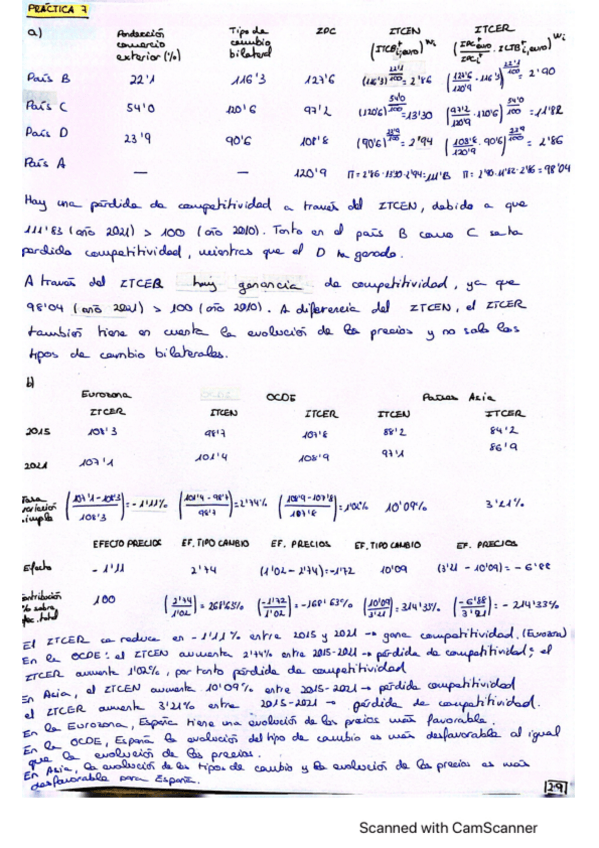 PRÁCTICA 7
a) Ponderación comercio exterior (%) Tipo de cambio bilateral IPC ITCEN ITCER
País B 22'1 116'3 127'6 (116'3)^(22'1/100) = 2'86 = 2'90
País C 54'0 120'6 97'2 (120'6)^(54'0/100) = 13'30 (97'2/120'9 · 120'6)^(54'0/100) = 11'82
País D 23'9 90'6 108'8 (90'6) = 2'94 (108'8/120'9 · 90'6) = 2'86
País A — — 120'9 = 98'04
Hay una pérdida de competitividad a través del ITCEN, debido a que
111'83 (año 2021) > 100 (año 2010). Tanto en el país B como C se ha
perdido competitividad, mientras que el D ha ganado.
A través del ITCER hay ganancia de competitividad, ya que
98'04 (año 2021) > 100 (año 2010). A diferencia del ITCEN, el ITCER
también tiene en cuenta la evolución de los precios y no solo los
tipos de cambio bilaterales.
b)
Eurozona OCDE Países Asia
ITCER ITCEN ITCER ITCEN ITCER
2015 108'3 98'7 107'8 88'2 84'2
2021 107'1 101'4 108'9 97'1 86'9
Tasa variación simple (107'1 - 108'3 / 108'3) = -1'11% (101'4 - 98'7 / 98'7) = 2'74% (108'9 - 107'8 / 107'8) = 1'02% 10'09% 3'21%
EFECTO PRECIOS EF. TIPO CAMBIO EF. PRECIOS EF. TIPO CAMBIO EF. PRECIOS
Efecto - 1'11 2'74 (1'02 - 2'74) = -1'72 10'09 (3'21 - 10'09) = - 6'88
Contribución % sobre efec. total 100 (2'74 / 1'02) = 268'63% (-1'72 / 1'02) = -168'63% (10'09 / 3'21) = 314'33% (-6'88 / 3'21) = - 214'33%
El ITCER se reduce en -1'11% entre 2015 y 2021 → gana competitividad. (Eurozona)
En la OCDE: el ITCEN aumenta 2'74% entre 2015-2021 → pérdida de competitividad; el
ITCER aumenta 1'02%, por tanto pérdida de competitividad
En Asia, el ITCEN aumenta 10'09% entre 2015-2021 → pérdida competitividad
el ITCER aumenta 3'21% entre 2015-2021 → pérdida de competitividad.
En la Eurozona, España tiene una evolución de los precios más favorable.
En la OCDE, España la evolución del tipo de cambio es más desfavorable al igual
que la evolución de los precios.
En Asia, la evolución de los tipos de cambio y la evolución de los precios es más
desfavorable para España.
29
Scanned with CamScanner